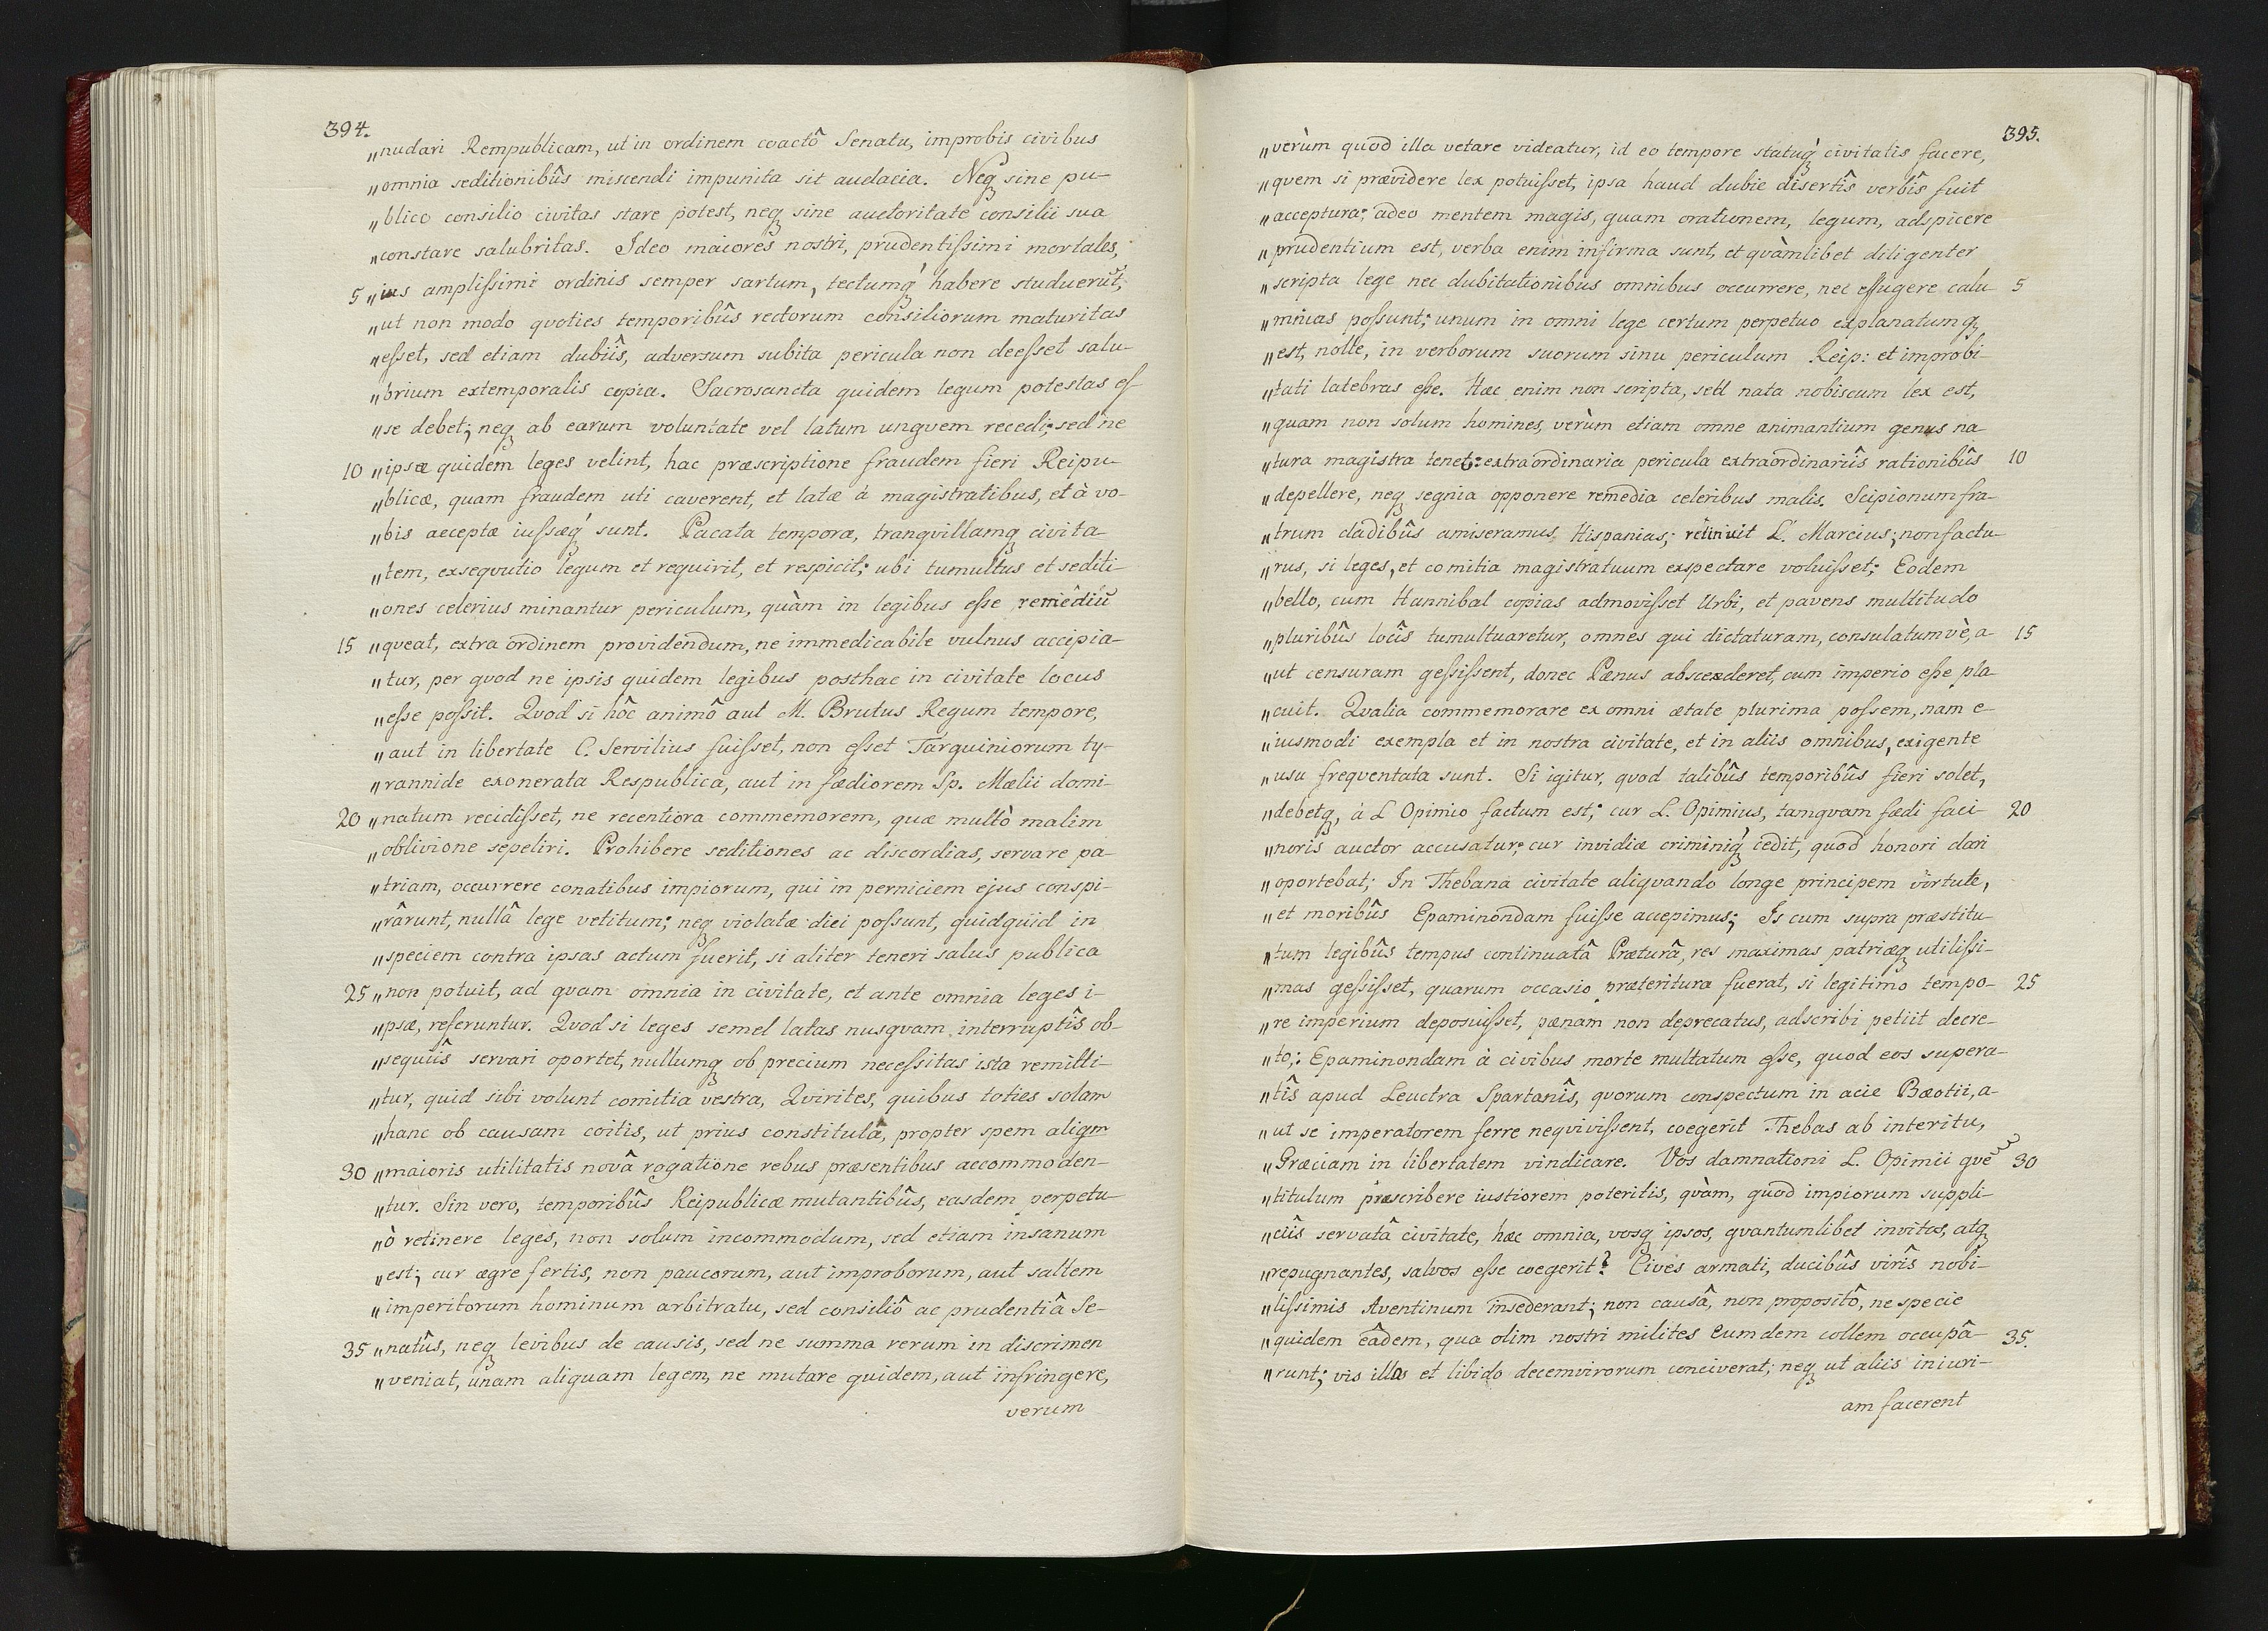 394.
„nudari Rempublicam, ut in ordinem coactô Senatu, improbis civibus
„omnia seditionibûs miscendi impunita sit audacia. Neq sine pu-
„blico consilio civitas stare potest, neq sine auctoritate consilii sua
„constare salubritas. Ideo maiores nostri, prudentissimi mortales,
5 „ius amplissimi ordinis semper sartum, tectumq́ habere studuerūt;
„ut non modo quoties temporibûs rectorum consiliorum maturitas
„esset, sed etiam dubiîs, adversum subita pericula non deesset salu-
„brium extemporalis copia. Sacrosancta quidem legum potestas es-
„se debet; neq ab earum voluntate vel latum ungvem recedi; sed ne
10 „ipsæ quidem leges velint, hac præscriptione fraudem fieri Reipu-
„blicæ, quam fraudem uti caverent, et latæ à magistratibus, et à vo-
„bis acceptæ iussæq́ sunt. Pacata tempora, tranqvillamq civita
„tem, exseqvutio legum et requirit, et respicit; ubi tumultus et sediti-
„ones celerius minantur periculum, quàm in legibus esse remediū
15 „qveat, extra ordinem providendum, ne immedicabile vulnus accipia-
„tur, per qvod ne ipsis quidem legibus posthac in civitate locus
„esse possit. Qvod si hôc animô aut M. Brutus Regum tempore,
„aut in libertate C. Servilius fuisset, non esset Tarquiniorum ty-
„rannide exonerata Respublica, aut in fædiorem Sp. Mælii domi-
20 „natum recidisset, ne recentiora commemorem, quæ multò malim
„oblivione sepeliri. Prohibere seditiones ac discordias, servare pa-
„triam, occurrere conatibus impiorum, qui in perniciem ejus conspi-
„rârunt, nullâ lege vetitum; neq violatæ dici possunt, quidquid in
„speciem contra ipsas actum fuerit, si aliter teneri salus publica
25 „non potuit, ad qvam omnia in civitate, et ante omnia leges i-
„psæ, referuntur. Qvod si leges semel latas nusqvam interruptîs ob-
„sequiîs servari oportet, nullumq ob precium necessitas ista remitti-
„tur, quid sibi volunt comitia vestra, Qvirites, quibus toties solam
„hanc ob causam coitis, ut prius constituta, propter spem aliqm
30 „maioris utilitatis novâ rogatione rebus præsentibus accommoden-
„tur. Sin vero, temporibûs Reipublicæ mutantibûs, easdem perpetu-
„ò retinere leges, non solum incommodum, sed etiam insanum
„est; cur ægre fertis, non paucorum, aut improborum, aut saltem
„imperitorum hominum arbitratu, sed consiliô ac prudentiâ Se-
35 „natûs, neq levibus de causis, sed ne summa rerum in discrimen
„veniat, unam aliquam legem, ne mutare quidem, aut infringere,
verum
395.
„verùm quod illa vetare videatur, id eo tempore statuq́ civitatis facere,
„qvem si prævidere lex potuisset, ipsa haud dubie disertîs verbîs fuit
„acceptura; adeo mentem magis, quam orationem, legum, adspicere
„prudentium est, verba enim infirma sunt, et qvàmlibet diligenter
„scripta lege nec dubitationibus omnibus occurrere, nec effugere calu- 5
„mnias possunt; unum in omni lege certum perpetuo explanatumq
„est, nolle, in verborum suorum sinu periculum Reip: et improbi-
„tati latebras esse. Hæc enim non scripta, sed nata nobiscum lex est,
„quam non solum homines, verùm etiam omne animantium genus na-
„tura magistra tenet: extraordinaria pericula extraordinariîs rationibûs 10
„depellere, neq segnia opponere remedia celeribus malis. Scipionum fra-
„trum cladibûs amiseramus Hispanias; retinuit L. Marcius; non factu-
„rus, si leges, et comitia magistratuum exspectare voluisset; Eodem
„bello, cum Hannibal copias admovisset Urbi, et pavens multitudo
„pluribûs locîs tumultuaretur, omnes qui dictaturam, consulatumvè, a- 15
„ut censuram gessissent, donec Pænus abscederet, cum imperio esse pla-
„cuit. Qvalia commemorare ex omni ætate plurima possem, nam e-
„iusmodi exempla et in nostra civitate, et in aliis omnibus, exigente
„usu freqventata sunt. Si igitur, qvod talibûs temporibûs fieri solet,
„debetq, à L Opimio factum est; cur L. Opimius, tamqvam fædi faci- 20
„noris auctor accusatur; cur invidiæ criminiq́ cedit, quod honori dari
„oportebat; In Thebana civitate aliqvando longe principem virtute,
„et moribûs Epaminondam fuisse accepimus; Is cum supra præstitu-
„tum legibûs tempus continuatâ Præturâ, res maximas patriæq utilissi-
„mas gessisset, quarum occasio præteritura fuerat, si legitimo tempo- 25
„re imperium deposuisset, pænam non deprecatus, adscribi petiit decre-
„to,: Epaminondam à civibus morte multatum esse, quod eos supera-
„tîs apud Leuctra Spartanîs, qvorum conspectum in acie Bæotii, a-
„ut se imperatorem ferre neqvivissent, coegerit Thebas ab interitu,
„Græciam in libertatem vindicare. Vos damnationi L. Opimii qvē 30
„titulum præscribere iustiorem poteritis, qvàm, quod impiorum suppli-
„ciis servatâ civitate, hæc omnia, vosq ipsos, qvantumlibet invitos, atq
„repugnantes, salvos esse coegerit? Cives armati, ducibûs virîs nobi-
„lissimis Aventinum insederant; non causâ, non propositô, ne specie
„quidem eâdem, qua olim nostri milites eumdem collem occupâ- 35.
„runt; vis illos et libido decemvirorum conciverat; neq ut aliis iniuri-
am facerent